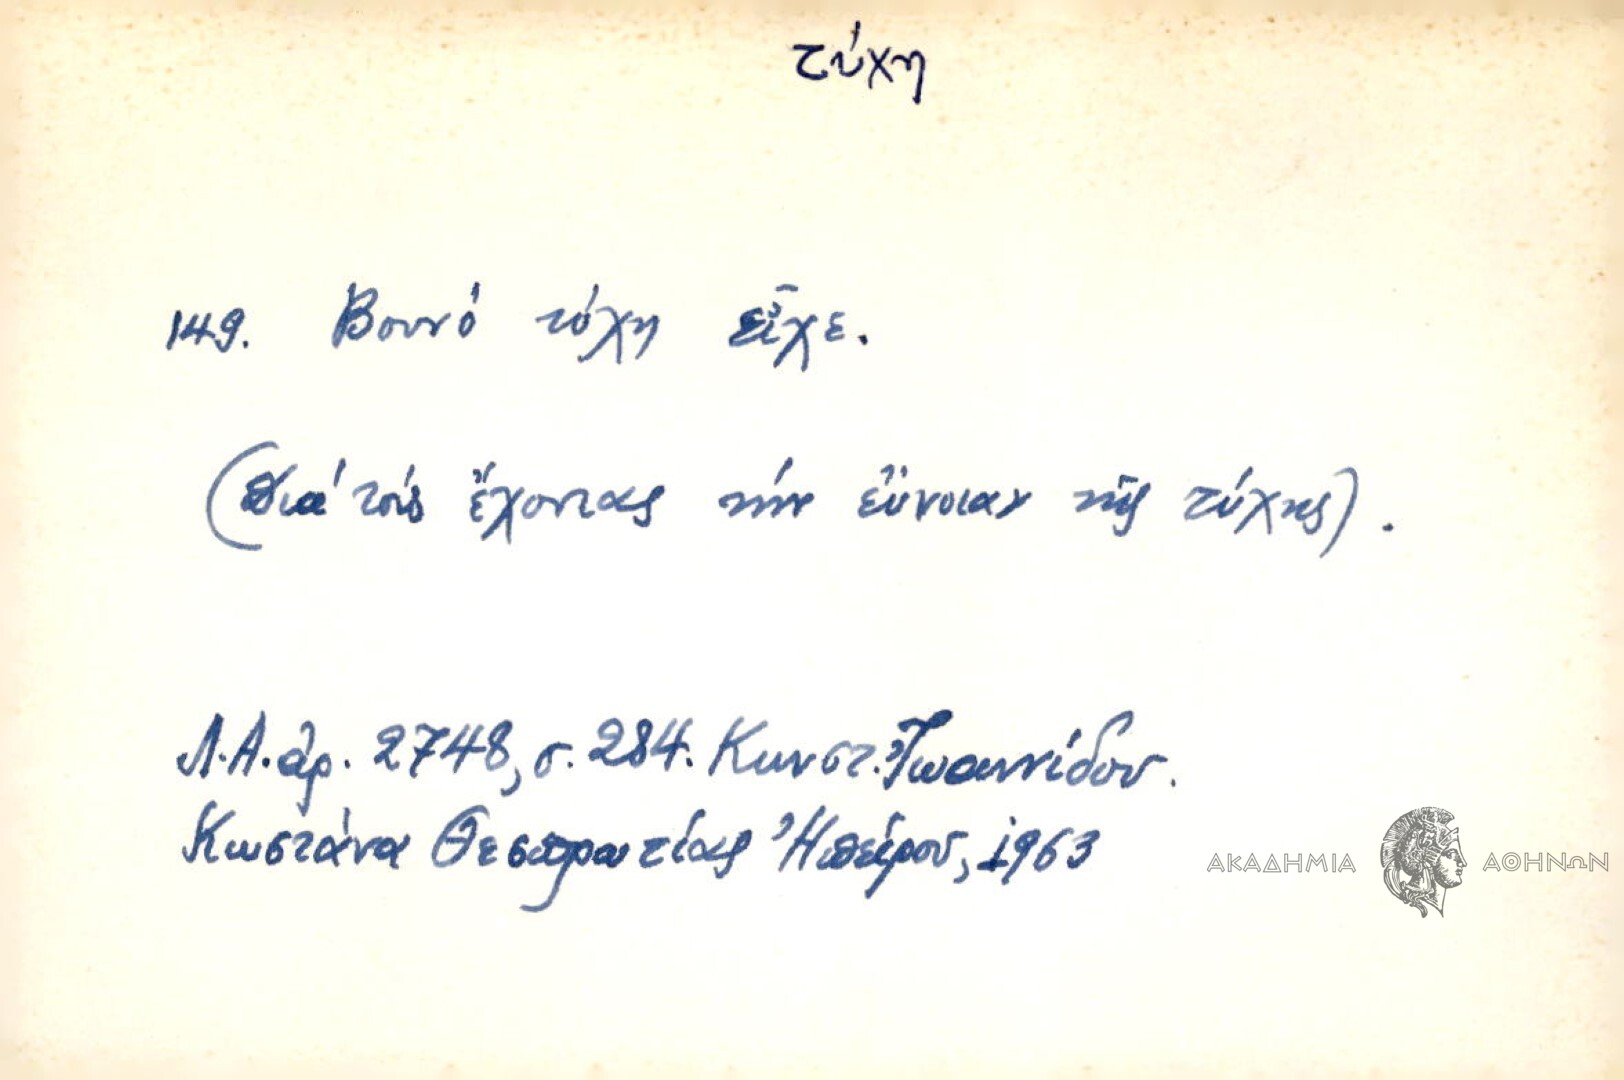 τύχη
149. Βουνό τύχη εἶχε.
(Διά τούς ἔχοντας τήν εὔνοιαν τῆς τύχης).
Λ.Α. ἀρ. 2748, σ. 284. Κωνστ. Ἰωαννίδου.
Κωστάνα Θεσπρωτίας Ἠπείρου, 1963
ΑΚΑΔΗΜΙΑ ΑΘΗΝΩΝ